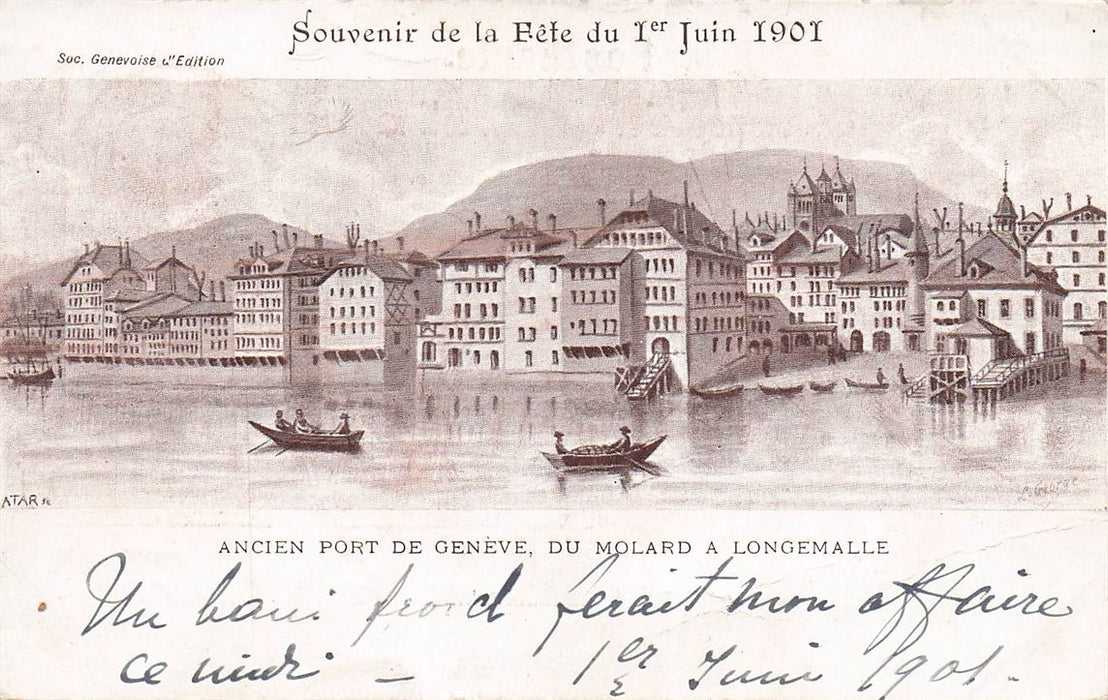 Souvenir de la Fête du 1er Juin 1901
Soc. Genevoise d'Edition
ATAR sc
P. George
ANCIEN PORT DE GENÈVE, DU MOLARD A LONGEMALLE
Un bain froid ferait mon affaire
ce midi – 1er Juin 1901.